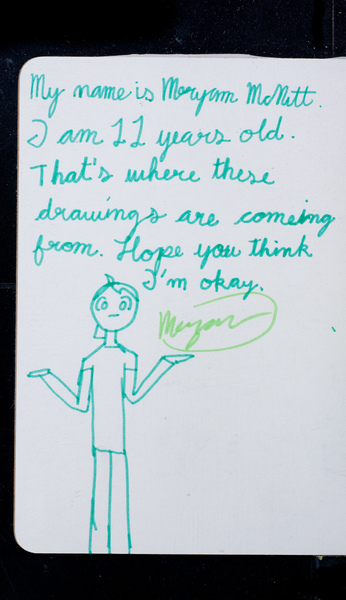 My name is Maryam McNitt.
I am 11 years old.
That's where these
drawings are comeing
from. Hope you think
I'm okay.
Maryam